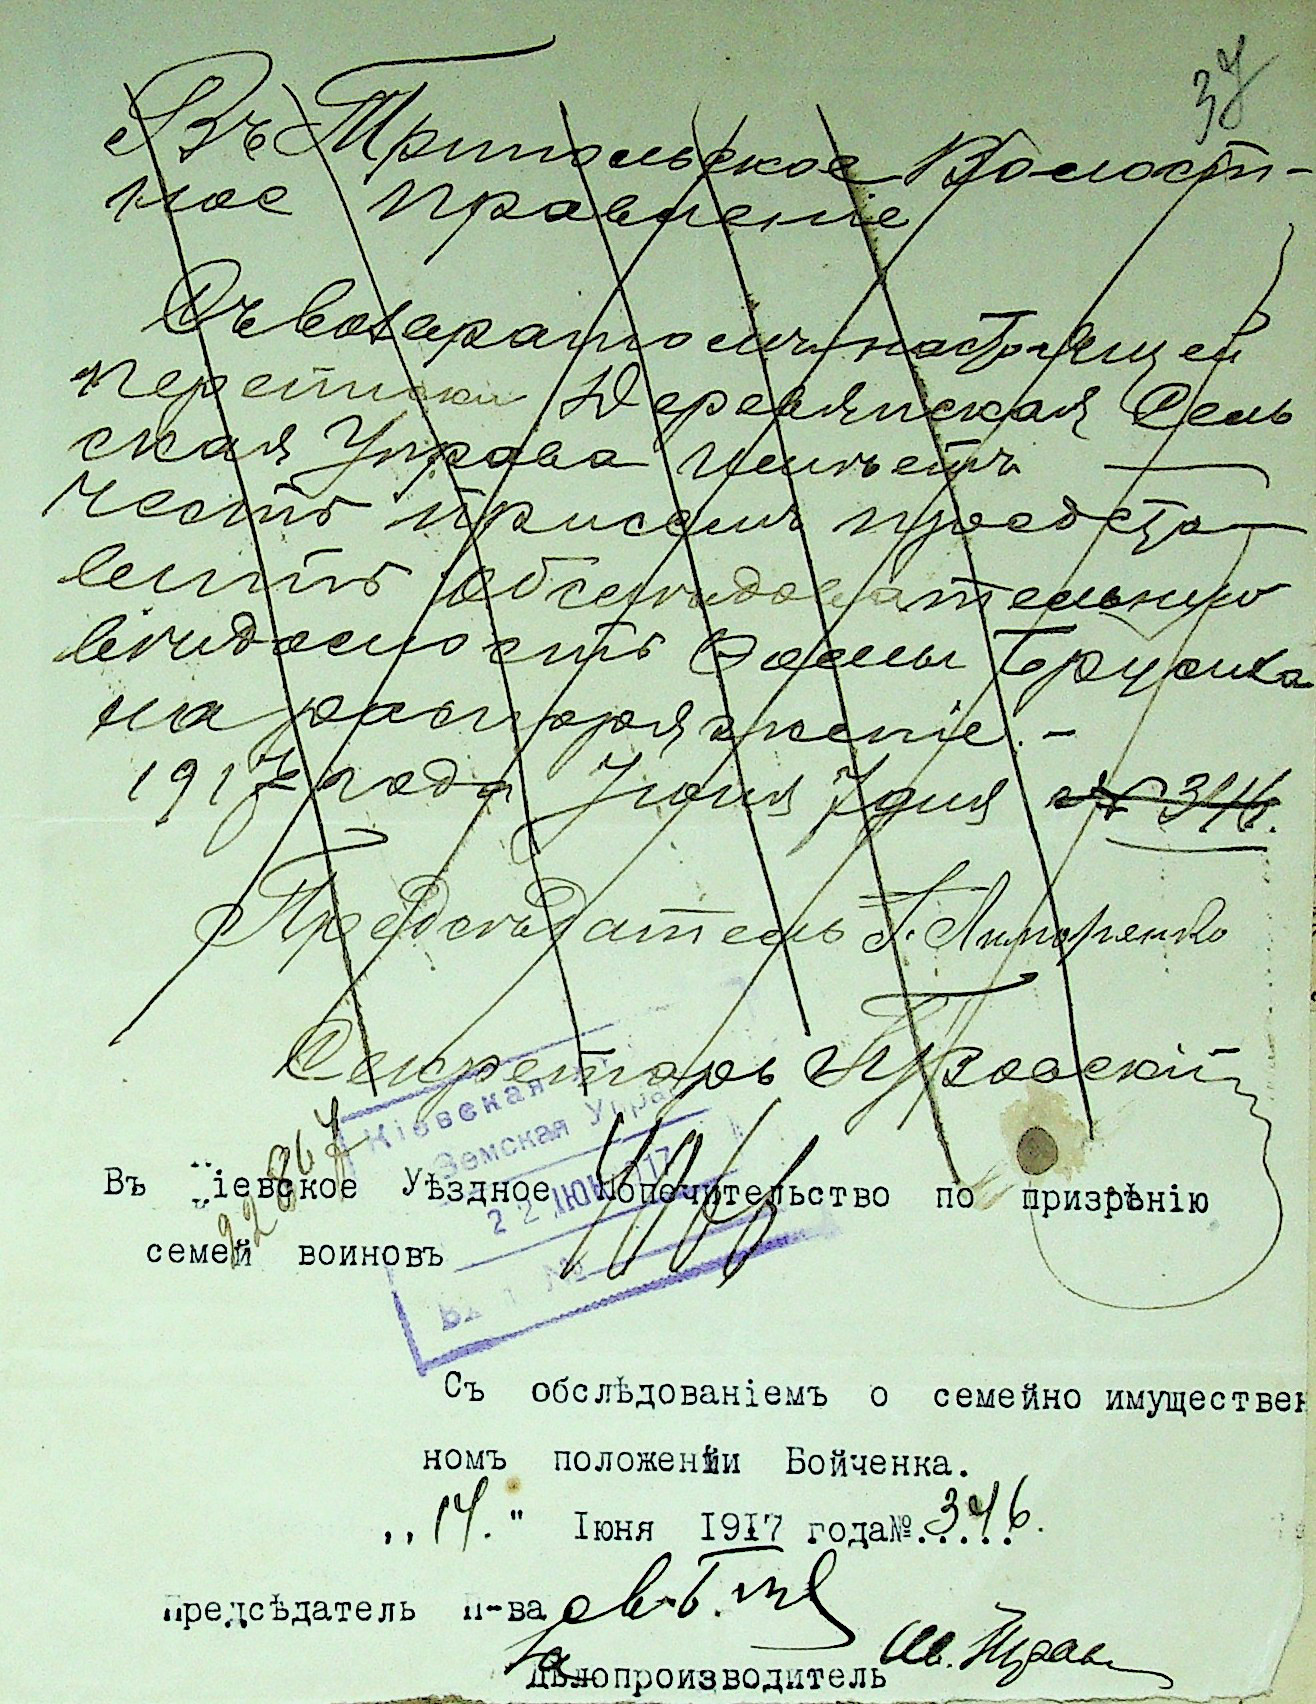 37
Въ Трипольское Волост-
ное Правленіе
Съ возвратомъ настоящей
переписки Деревянская Сель
ская Управа имѣетъ
честь присемъ предста-
вить обслѣдовательную
вѣдомость Ѳеклы
на распоряженіе.-
1917 года Іюня 7 дня № 346.
Предсѣдатель Г.
Секретарь
Кіевская
Земская Управа
22 ІЮН 1917
Вх. №
22867
Въ Кіевское Уѣздное Попечительство по призрѣнію
семей воиновъ
Съ обслѣдованіемъ о семейно имуществен
номъ положеніи Бойченка.
„14." Іюня 1917 года № 346.
Предсѣдатель П-ва
За
Дѣлопроизводитель